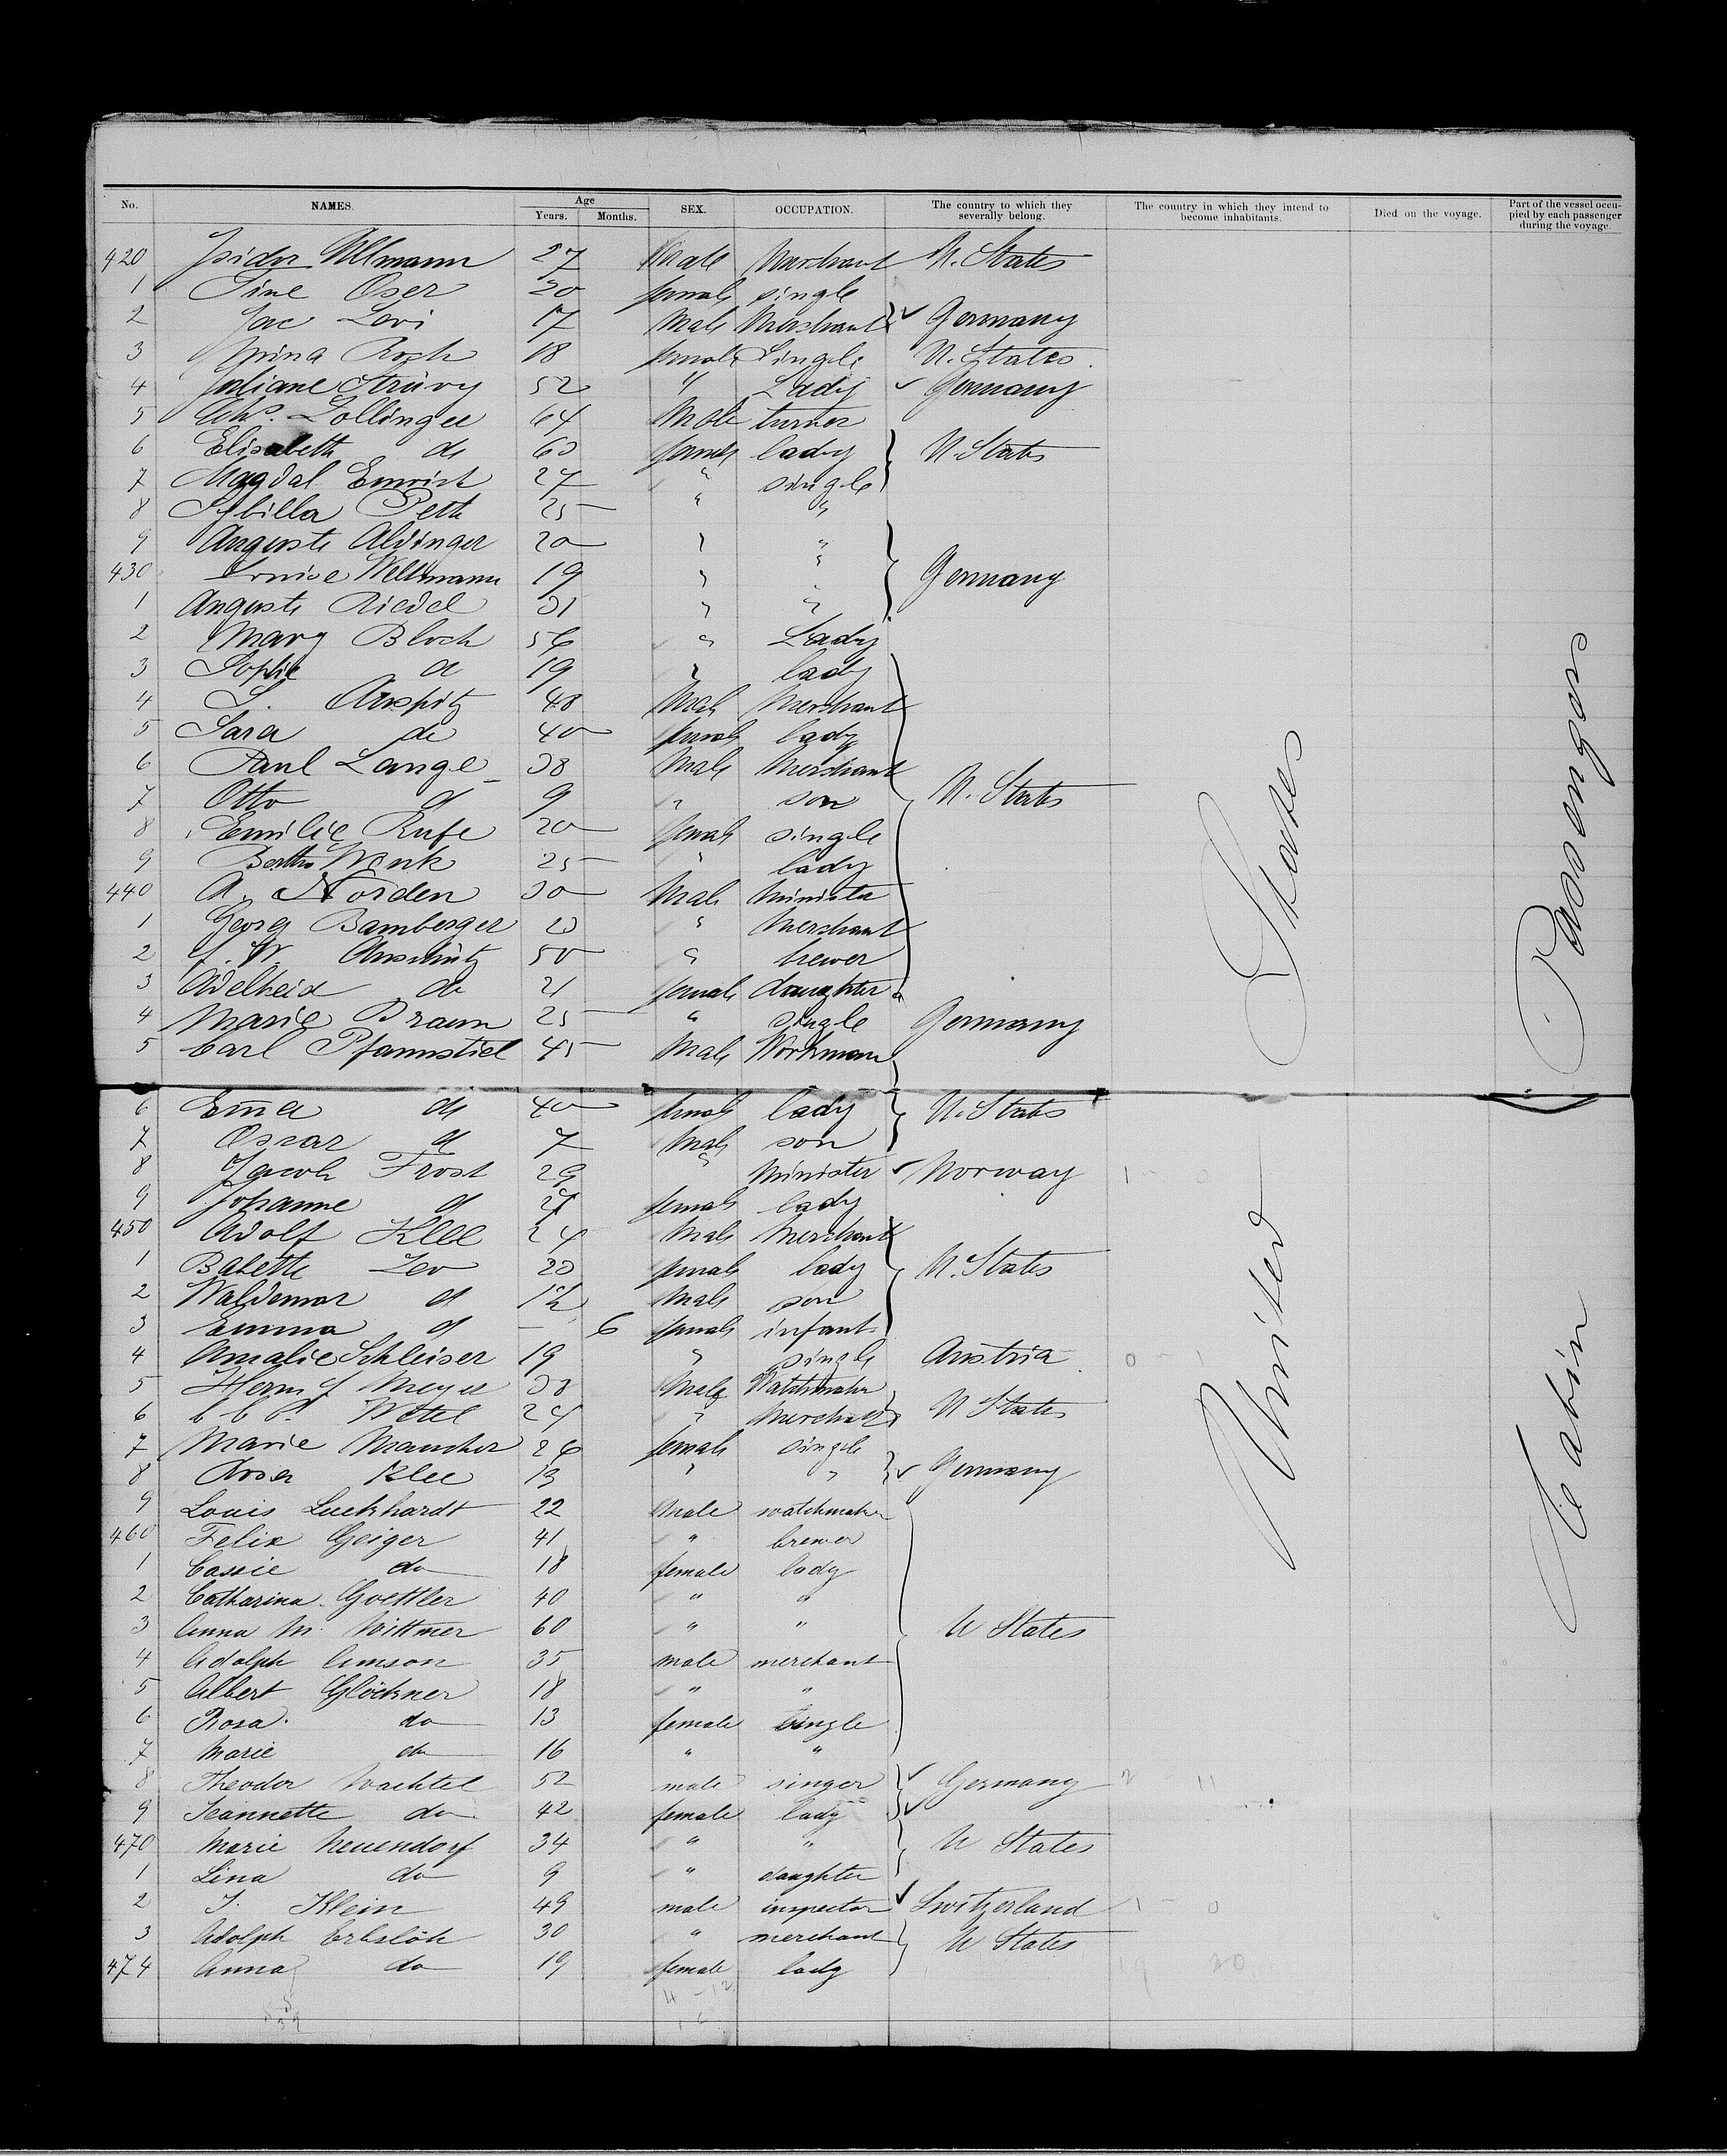 No. NAMES. Age Years. Months. SEX. OCCUPATION. The country to which they severally belong. The country in which they intend to become inhabitants. Died on the voyage. Part of the vessel occupied by each passenger during the voyage.
420 Isidor Ullmann 27 Male Merchant U. States
1 Tine Oser 20 female single
2 Jac Levi 17 Male Merchant Germany
3 18 female Single U. States
4 Juliane 52 " Lady Germany
5 Zollinger 64 Male turner
6 Elisabeth do 60 female lady U States
7 Magdal Emrich 27 " single
8 Sybilla Peth 25 " "
9 Auguste Aldinger 20 " "
430 Louise Wellmann 19 " " Germany
1 Auguste Riedel 31 " "
2 Mary Bloch 56 " Lady
3 Sophie d 19 " lady
4 S. Auspitz 48 Male Merchant
5 Sara do 40 female lady
6 Paul Lange 38 Male Merchant
7 Otto d 9 " son U. States
8 Emilie Rufe 20 female single
9 Bertha Wenk 25 " lady
440 A. Norden 30 Male Minister
1 Georg Bamberger 23 " Merchant
2 W. Anschütz 50 " brewer
3 Adelheid do 21 female daughter
4 Marie Braun 25 " single Germany
5 Carl Pfannstiel 45 Male Workman
6 Em̄a do 40 female lady U. States
7 Oscar d 7 Male son
8 Jacob Frost 29 " Minister Norway 1 - 0
9 Johanne d female lady
450 Adolf Klee 24 Male Merchant
1 Babette 23 female lady U. States
2 Waldemar d 1½ Male son
3 Emma d — 6 female infant
4 Amalie Schleiser 19 " single Austria 0 - 1
5 Herm J Meyer 38 Male Watchmaker
6 C C P. Wetel 24 " Merchant U States
7 Marie Mancher 26 female single
8 Klee 19 " " Germany
9 Louis Luckhardt 22 Male watchmaker
460 Felix Geiger 41 " brewer
1 Cassie do 18 female lady
2 Catharina Goettler 40 " "
3 Anna M. Wittmer 60 " " U States
4 Adolph Amson 35 male merchant
5 Albert Glöckner 18 " "
6 Rosa do 13 female single
7 Marie do 16 " "
8 Theodor Wachtel 52 male singer Germany 2 - 11
9 Jeannette do 42 female lady
470 Marie Neuendorf 34 " " U States
1 Lina do 9 " daughter
2 J. Klein 49 male inspector Switzerland 1 - 0
3 Adolph Erbslöh 30 " merchant U States
474 Anna do 19 female lady 9 20
United States
Cabin Passengers